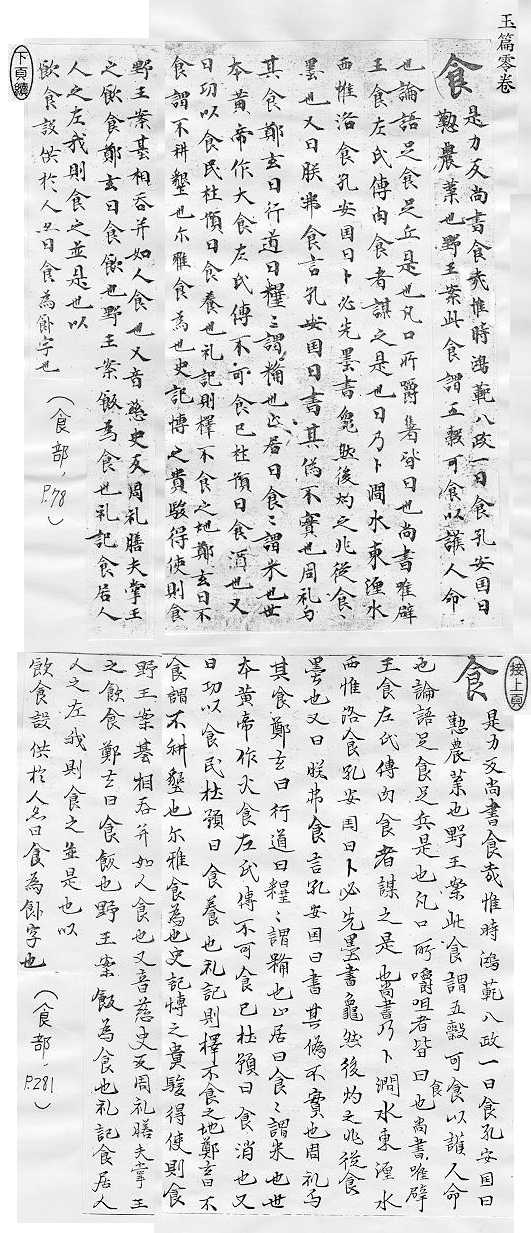 玉篇零卷
食
是力反尚書食哉惟時鴻範八政一曰食孔安囯曰
懃農業也野王案此食謂五穀可食以護人命
也論語足食足丘是也凡口所嚼著皆曰也尚書唯辟
王食左氏傳肉食者謀之是也曰乃卜澗水東湹水
西惟洛食孔安囯曰卜必先墨書龜然後灼之兆從食〻
墨也又曰朕弗食言孔安囯曰書其偽不實也周礼与
其食鄭玄曰行道曰糧〻謂糒也止居曰食〻謂米也世
夲黄帝作火食左氏傳不可食已杜預曰食消也又
曰功以食民杜預曰食養也礼記則擇不食之地鄭玄曰不
食謂不耕墾也尓雅食為也史記博之貴駿得使則食
野王案棊相吞并如人食也又音慈史反周礼膳夫掌王
之飲食鄭玄曰食飲也野王案飯為食也礼記食居人
人之左我則食之並是也以
飲食設供於人亦曰食為飤字也
(食部,P.78)
下頁續
接上頁
食
是力反尚書食哉惟時鴻範八政一曰食孔安囯曰
懃農業也野王案此食謂五穀可食以護人命
也論語足食足兵是也凡口所嚼咀者皆曰食也尚書唯辟
王食左氏傳肉食者謀之是也尚書乃卜澗水東湹水
西惟洛食孔安囯曰卜必先墨書龜然後灼之兆從食
墨也又曰朕弗食言孔安囯曰書其偽不實也周礼与
其食鄭玄曰行道曰糧〻謂糒也止居曰食〻謂米也世
夲黄帝作火食左氏傳不可食已杜預曰食消也又
曰功以食民杜預曰食養也礼記則擇不食之地鄭玄曰不
食謂不耕墾也尓雅食為也史記博之貴駿得使則食
野王案棊相吞并如人食也又音慈史反周礼膳夫掌王
之飲食鄭玄曰食飯也野王案飯為食也礼記食居人
人之左我則食之並是也以
飲食設供於人亦曰食為飤字也
(食部,P.281)